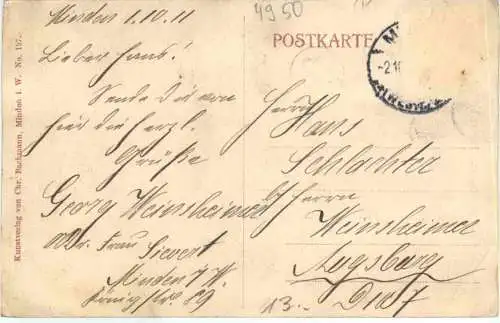 Minden 1.10.11
Lieber Hans!
Sende Dir von
hier die herzl.
Grüße
Georg Weinsheimer
Adr. Frau Sievert
Minden i/W.
Königstr. 89
4950
POSTKARTE
Herrn
Hans
Schlachter
b/ Herrn
Weinsheimer
Augsburg
13.
Kunstverlag von Chr. Bachmann, Minden i. W. No. 197.